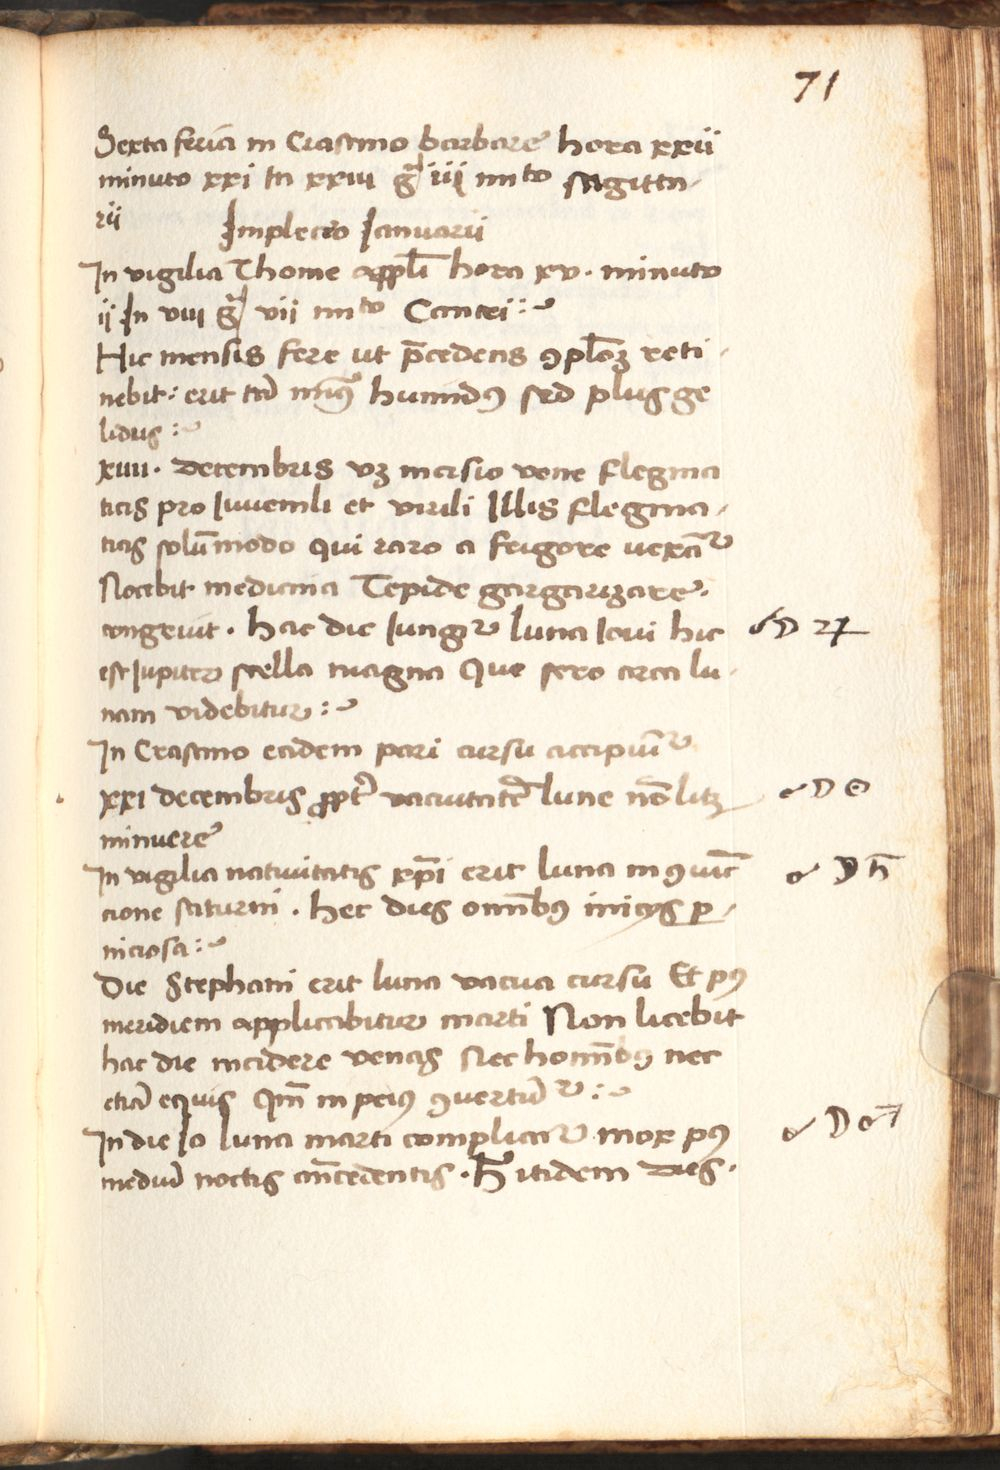 71
Sexta feria in Crastino barbare hora xxii
minuto xxi In xxiii gͣ iii miͭᵒ sagitta-
rii
Impletio Ianuarii
In vigilia Thome appl̄i hora xv. minuto
ii In viii gͣ vii miͭᵒ Cancri :~
Hic mensis fere ut p̄cedens ꝯplōꝫ reti-
nebit: erit tn̄ minꝰ humidꝰ sed plus ge
lidus :~
xiiii. decembris vꝫ incisio vene flegma
ticis pro Iuvenili et virili Illis flegma-
ticis solūmodo qui raro a frigore uexāt᷑
Nocebit medicina Tepide gargarizare
congruit. hac die Iungit᷑ luna Iovi hic
☌ ☽ ♃
est Iupiter stella magna Que sero circa lu-
nam videbitur :~
In Crastino eadem pari cursu accipiūt᷑
xxi decembris ꝓpt̄ vacuitatē lune nō litꝫ
☍ ☽ ☉
minuere
In vigilia nativitatis xp̄i erit luna in ꝯiūc
☍ ☽ ♄
cione saturni. hec dies omībꝰ inicijs ꝑ-
niciosa :~
Die Stephani erit luna vacua cursu Et pꝰ
meridiem applicabitur marti Non licebit
hac die incidere venas Nec homībꝰ nec
etiā equis Qm̄ in peiꝰ ꝯvertūt᷑ :~
In die Io luna marti complicat᷑ mox pꝰ
☍ ☽ ♂
mediū noctis ān̄cedentis. H̄ itidem dies.